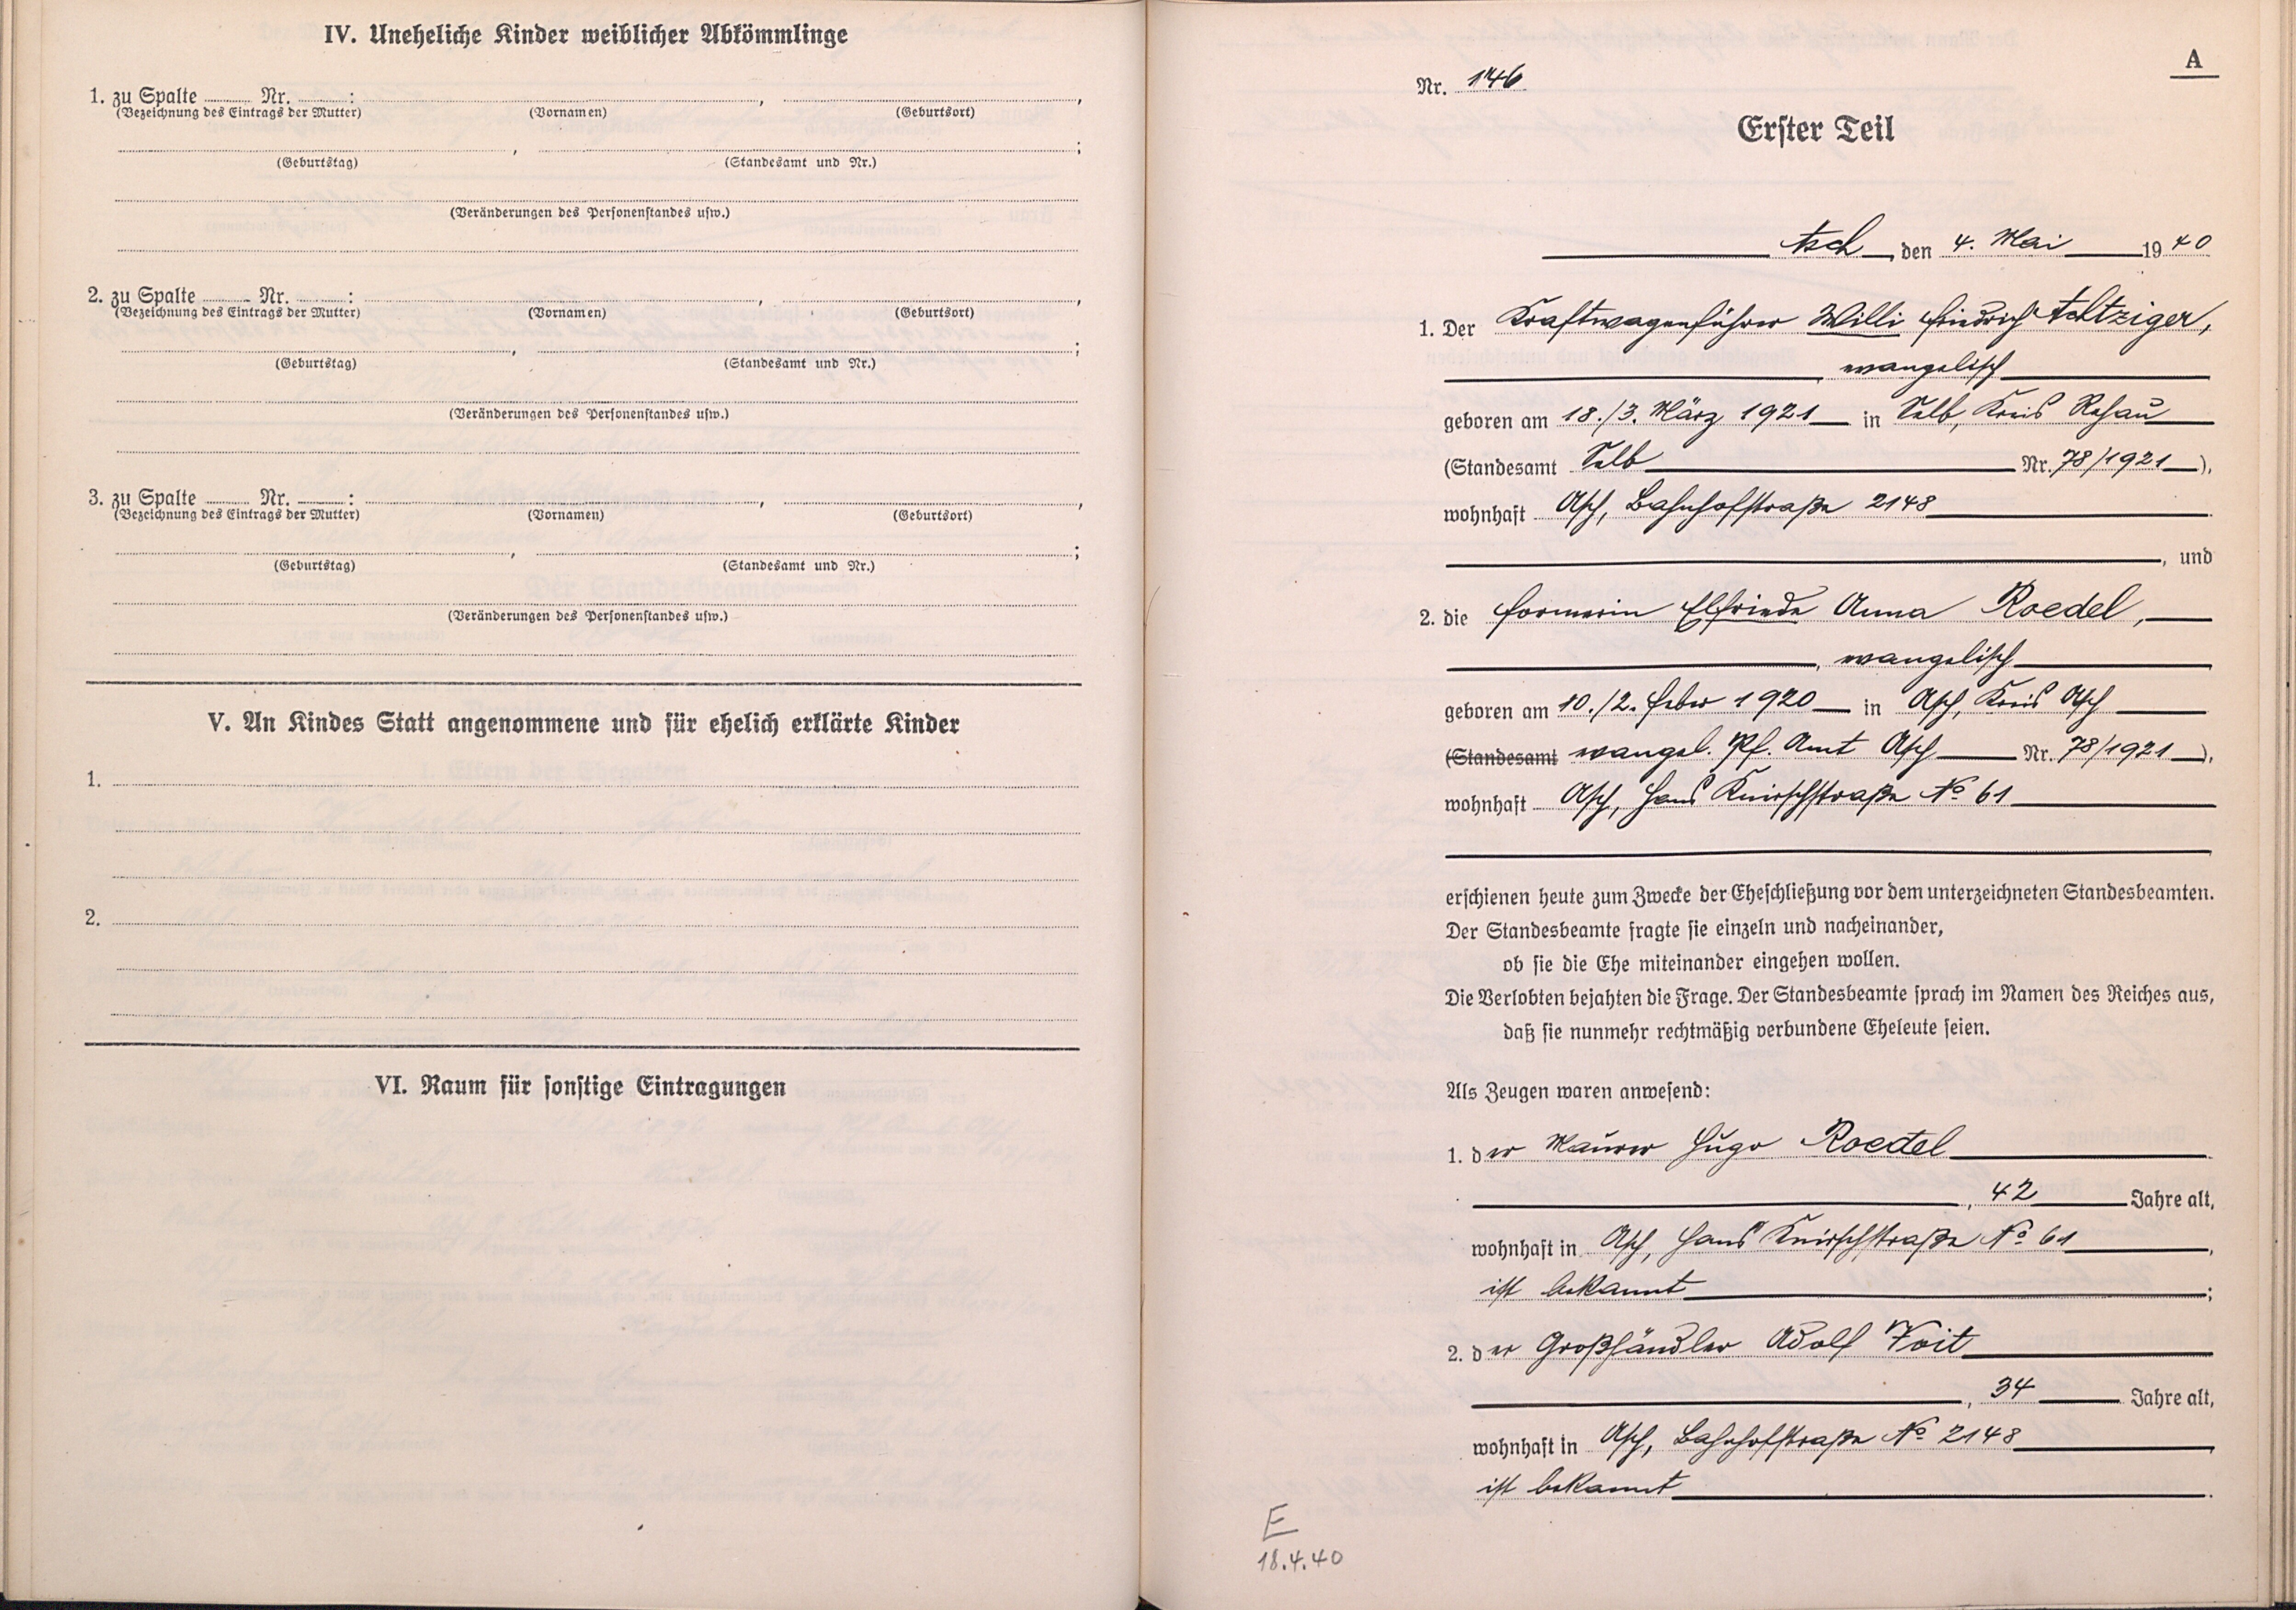 IV. Uneheliche Kinder weiblicher Abkömmlinge
1. zu Spalte ........ Nr. ........: ........, ........,
(Bezeichnung des Eintrags der Mutter) (Vornamen) (Geburtsort)
........, ........;
(Geburtstag) (Standesamt und Nr.)
(Veränderungen des Personenstandes usw.)
2. zu Spalte ........ Nr. ........: ........, ........,
(Bezeichnung des Eintrags der Mutter) (Vornamen) (Geburtsort)
........, ........;
(Geburtstag) (Standesamt und Nr.)
(Veränderungen des Personenstandes usw.)
3. zu Spalte ........ Nr. ........: ........, ........,
(Bezeichnung des Eintrags der Mutter) (Vornamen) (Geburtsort)
........, ........;
(Geburtstag) (Standesamt und Nr.)
(Veränderungen des Personenstandes usw.)
V. An Kindes Statt angenommene und für ehelich erklärte Kinder
1.
2.
VI. Raum für sonstige Eintragungen
A
Nr. 146
Erster Teil
Asch, den 4. Mai 1940
1. Der Kraftwagenführer Willi Friedrich Achtziger,
, evangelisch
geboren am 18./3. März 1921 in Selb, Kreis Rehau
(Standesamt Selb Nr. 78/1921),
wohnhaft Asch, Bahnhofstraße 2148
, und
2. die Formerin Elfriede Anna Roedel,
, evangelisch
geboren am 10./2. Feber 1920 in Asch, Kreis Asch
(Standesamt evangel. Pf. Amt Asch Nr. 78/1921),
wohnhaft Asch, Hans Knirschstraße No 61
erschienen heute zum Zwecke der Eheschließung vor dem unterzeichneten Standesbeamten.
Der Standesbeamte fragte sie einzeln und nacheinander,
ob sie die Ehe miteinander eingehen wollen.
Die Verlobten bejahten die Frage. Der Standesbeamte sprach im Namen des Reiches aus,
daß sie nunmehr rechtmäßig verbundene Eheleute seien.
Als Zeugen waren anwesend:
1. der Maurer Hugo Roedel
, 42 Jahre alt,
wohnhaft in Asch, Hans Knirschstraße No 61,
ist bekannt;
2. der Großhändler Adolf Voit
, 34 Jahre alt,
wohnhaft in Asch, Bahnhofstraße No 2148,
ist bekannt.
E
18.4.40